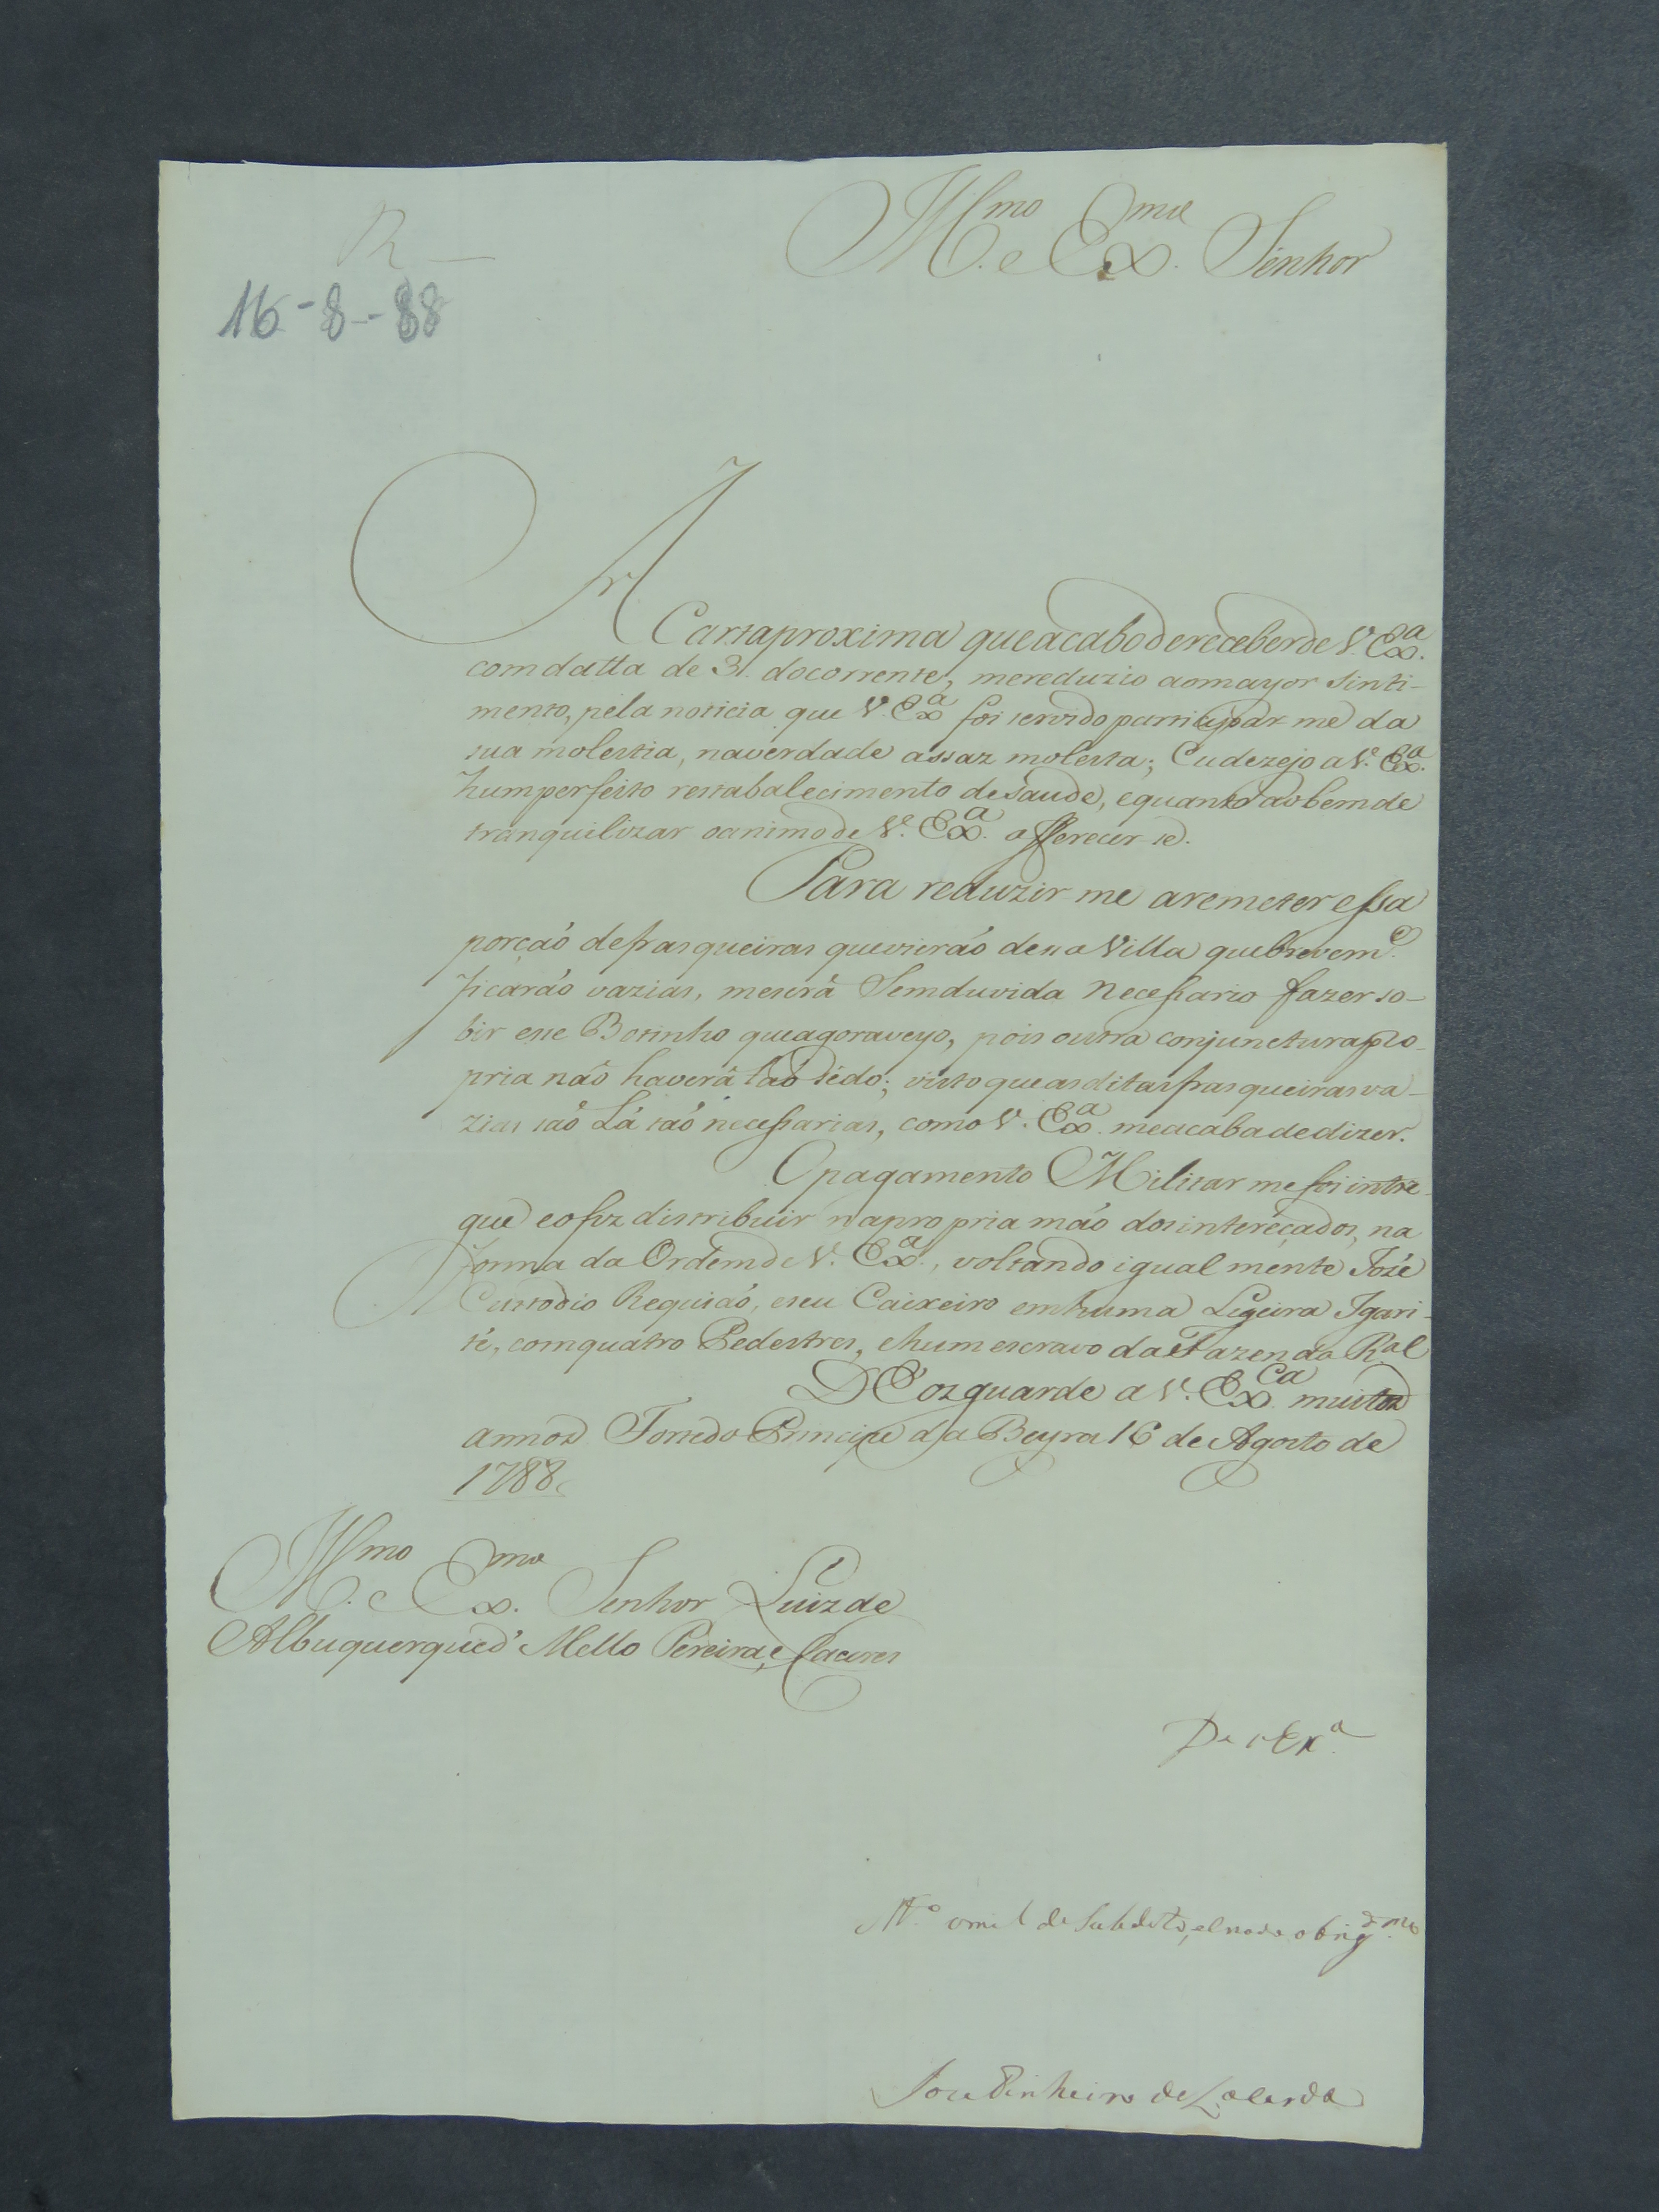 R
16-8-88
Ill.mo e Ex.mo Senhor
A
Carta proxima que acabo de receber de V. Ex.a
com datta de 31. do corrente, me reduzio ao mayor sinti-
mento, pela noticia que V. Ex.a foi servido participar me da
sua molestia, na verdade assaz molesta; Eu dezejo a V. Ex.a
hum perfeito restabalecimento de saude, e quanto ao bem de
tranquilizar o animo de V. Ex.a offerecer se.
Para reduzir me a remeter essa
porção de frasqueiras que vierão dessa Villa que brevem.e
ficarão vazias, me será Sem duvida Necessario fazer so-
bir esse Botinho que agora veyo, pois outra conjunctura pro-
pria não haverá tão sédo; visto que as ditas frasqueiras va-
zias são Lá tão necessarias, como V. Ex.a me acaba de dizer.
O pagamento Militar me foi intre-
gue e o fiz distribuir na propria mão dos intereçados, na
forma da Ordem de V. Ex.a, voltando igual mente Jozé
Custodio Requião, e seu Caixeiro em huma Ligeira Igari-
té, com quatro Pedestres, e hum escravo da Fazenda R.al
D Eos guarde a V. Ex.ca muitos
annos Forte do Principe da Beyra 16 de Agosto de
1788.
Ill.mo e Ex.mo Senhor Luiz de
Albuquerque d' Mello Pereira, e Caceres
De V Ex.a
M.to omilde Subdito, e o mais obrig.mo
Joze Pinheiro de Lacerda